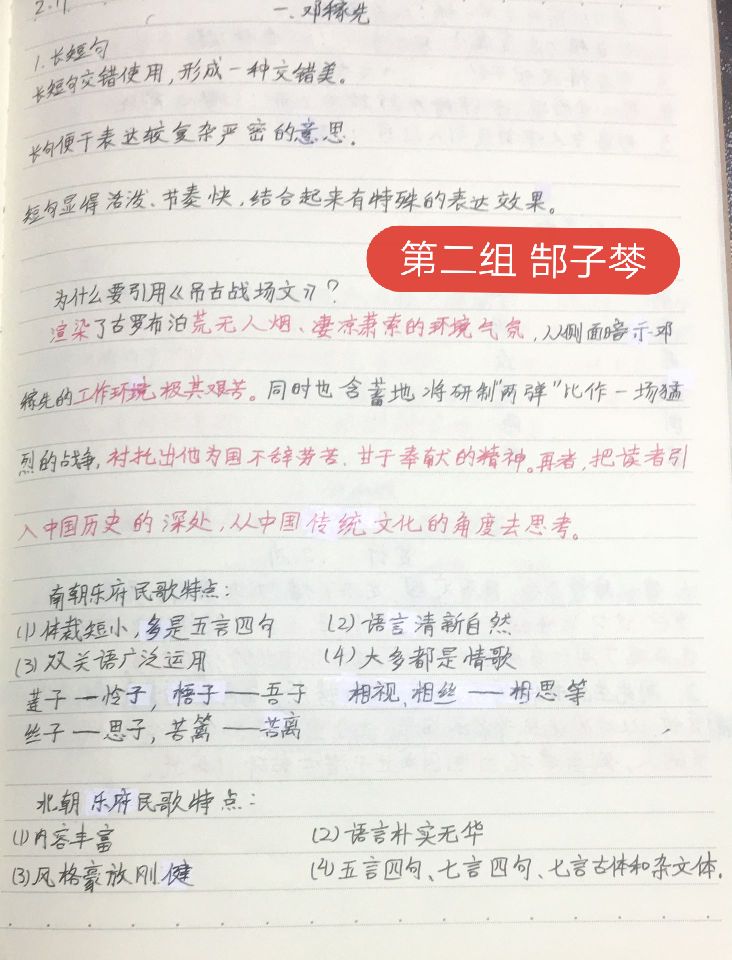 2.17
一.邓稼先
1.长短句
长短句交错使用,形成一种交错美。
长句便于表达较复杂严密的意思.
短句显得活泼、节奏快,结合起来有特殊的表达效果。
第二组 郜子棽
为什么要引用《吊古战场文》?
渲染了古罗布泊荒无人烟、凄凉萧索的环境气氛,从侧面暗示邓
稼先的工作环境极其艰苦。同时也含蓄地将研制"两弹"比作一场猛
烈的战争,衬托出他为国不辞劳苦、甘于奉献的精神。再者,把读者引
入中国历史的深处,从中国传统文化的角度去思考。
南朝乐府民歌特点:
(1)体裁短小,多是五言四句 (2)语言清新自然
(3)双关语广泛运用 (4)大多都是情歌
莲子——怜子,梧子——吾子 相视、相丝——相思等
丝子——思子,苦篱——苦离
北朝乐府民歌特点:
(1)内容丰富 (2)语言朴实无华
(3)风格豪放刚健 (4)五言四句、七言四句、七言古体和杂文体.